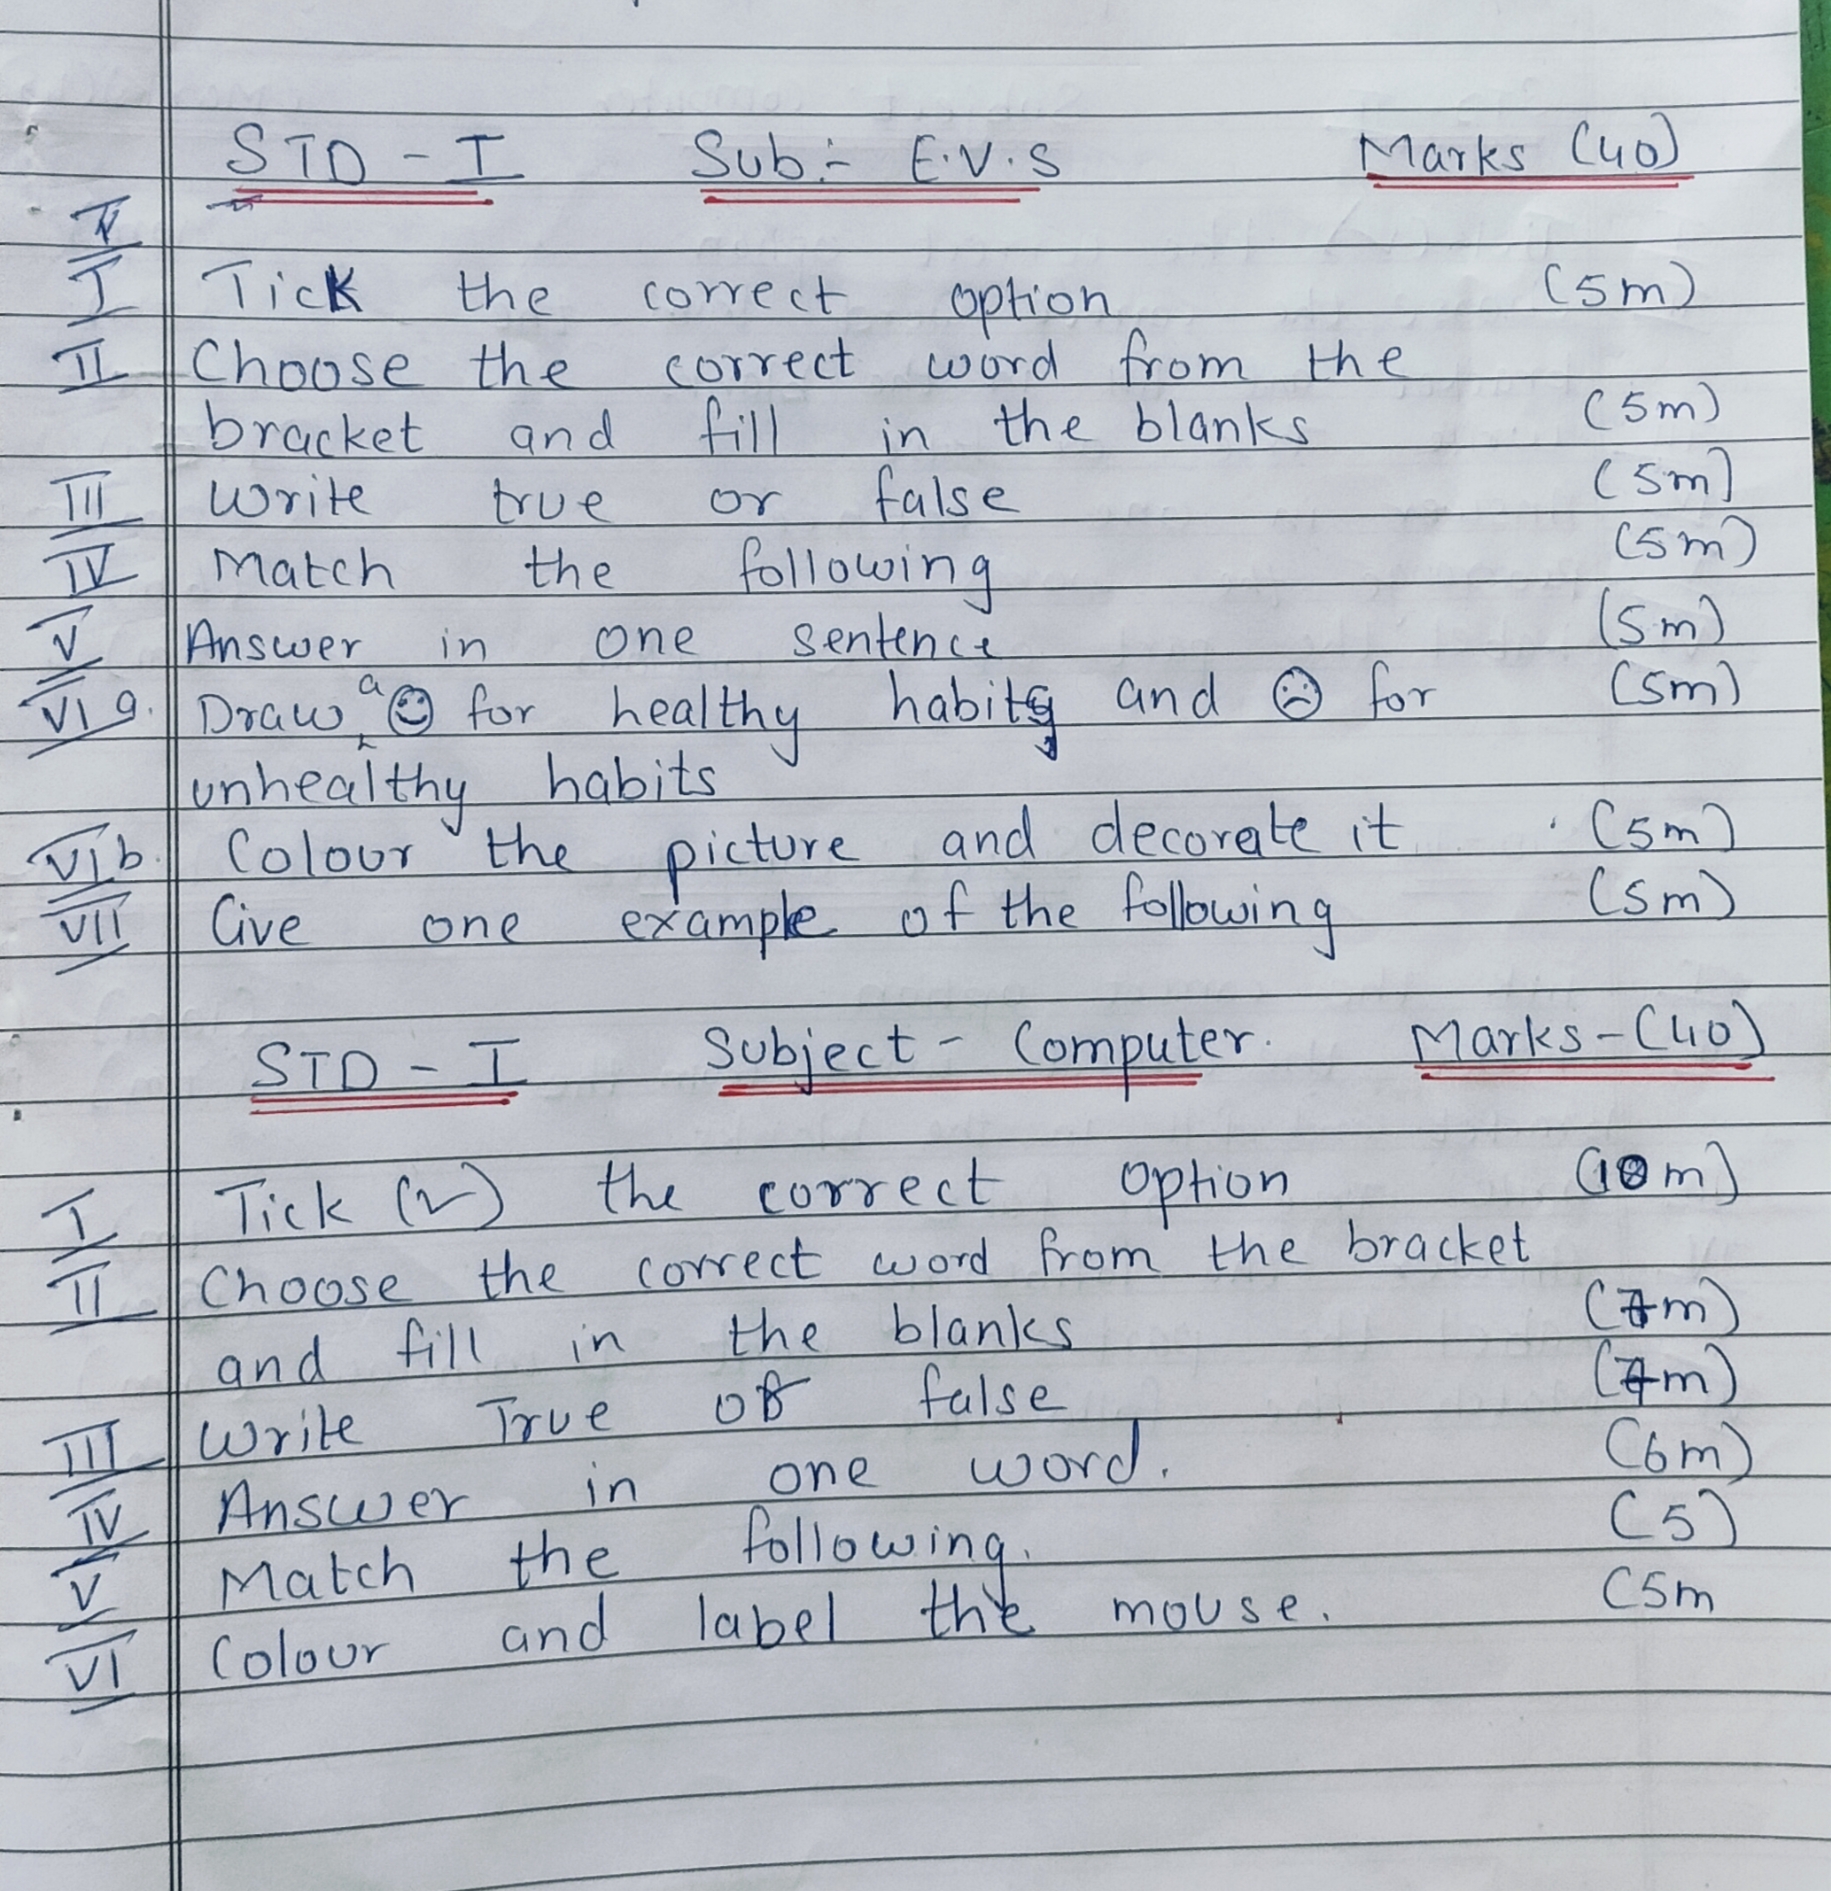 STD - I Sub:- E.V.S Marks (40)
I Tick the correct option (5m)
II Choose the correct word from the
bracket and fill in the blanks (5m)
III Write true or false (5m)
IV Match the following (5m)
V Answer in one sentence (5m)
VI a. Draw a ☺ for healthy habits and ☹ for (5m)
unhealthy habits
VI b. Colour the picture and decorate it (5m)
VII Give one example of the following (5m)
STD - I Subject - Computer. Marks - (40)
I Tick (✓) the correct option (10m)
II Choose the correct word from the bracket
and fill in the blanks (7m)
III Write True or false (7m)
IV Answer in one word. (6m)
V Match the following. (5)
VI Colour and label the mouse. (5m